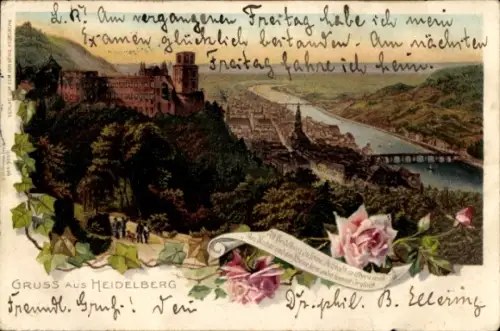 L. R! Am vergangenen Freitag habe ich mein
Examen glücklich bestanden. Am nächsten
Freitag fahre ich heim.
GRUSS AUS HEIDELBERG
Freundl. Gruß! Dein
Dr. phil. B. Ellering